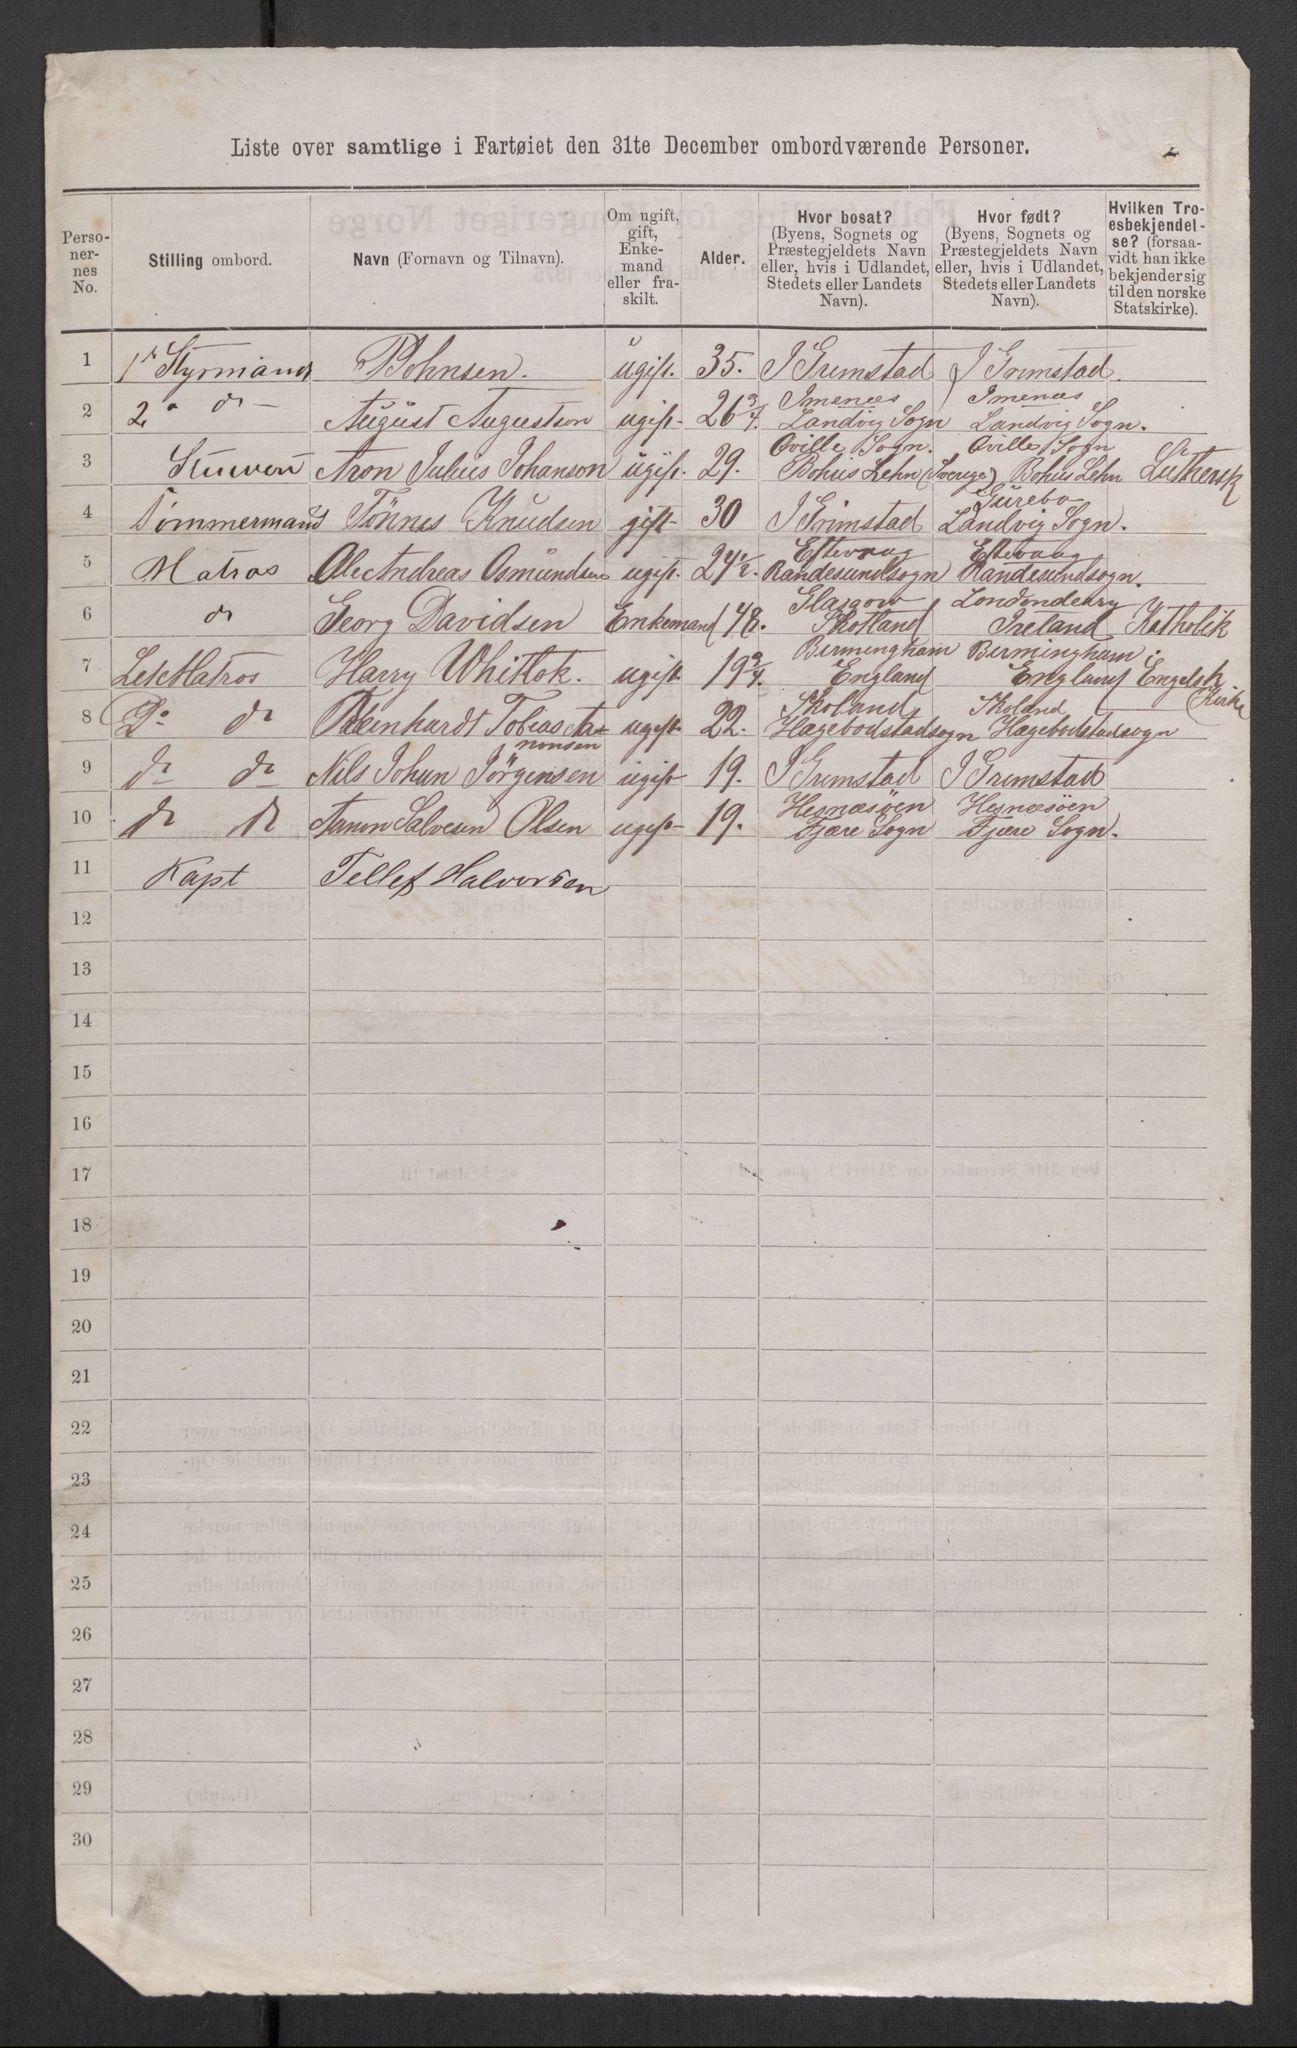 Liste over samtlige i Fartøiet den 31te December ombordværende Personer.
Perso-ner-nes No. | Stilling ombord. | Navn (Fornavn og Tilnavn). | Om ugift, gift, Enke-mand eller fra-skilt. | Alder. | Hvor bosat? (Byens, Sognets og Præstegjeldets Navn eller, hvis i Udlandet, Stedets eller Landets Navn). | Hvor født? (Byens, Sognets og Præstegjeldets Navn eller, hvis i Udlandet, Stedets eller Landets Navn). | Hvilken Tro-esbekjendel-se? (forsaa-vidt han ikke bekjender sig til den norske Statskirke).
1 | 1r Styrmand | Johnsen. | ugift. | 35. | I Grimstad | I Grimstad.
2 | 2 do | August Augustson | ugift | 26 3/4. | Imenes Landvig Sogn | Imenes Landvig Sogn.
3 | Stuvert | Aron Julius Johanson | ugift. | 29. | Oville Sogn. Bohus Lehn (Sverige) | Oville Sogn Bohus Lehn | Luthersk
4 | Tømmermand | Tönnes Knudsen | gift | 30 | I Grimstad | Landvig Sogn.
5 | Matros | Ole Andreas Osmundsen | ugift. | 24 1/2. | Eftevaag Randesundsogn | Eftevaag Randesundsogn.
6 | do | Georg Davidsen | Enkemand | 48. | Glasgow Skotland | Londonderry Ireland | Katholik
7 | Let Matros | Harry Whitlok. | ugift | 19 3/4. | Birmingham England | Birmingham. England | Engelsk Kirke
8 | Do do | Reinhardt Tobias Aa-nonsen | ugift | 22. | Skoland Hægebodstadsogn | Skoland Hægebodstadsogn
9 | do do | Nils Johan Jörgensen | ugift | 19. | I Grimstad | I Grimstad
10 | do do | Aanon Salvesen Olsen | ugift | 19. | Hesnæsöen Fjære Sogn | Hesnæsöen Fjære Sogn.
11 | Kapt | Tellef Halvorsen
12
13
14
15
16
17
18
19
20
21
22
23
24
25
26
27
28
29
30